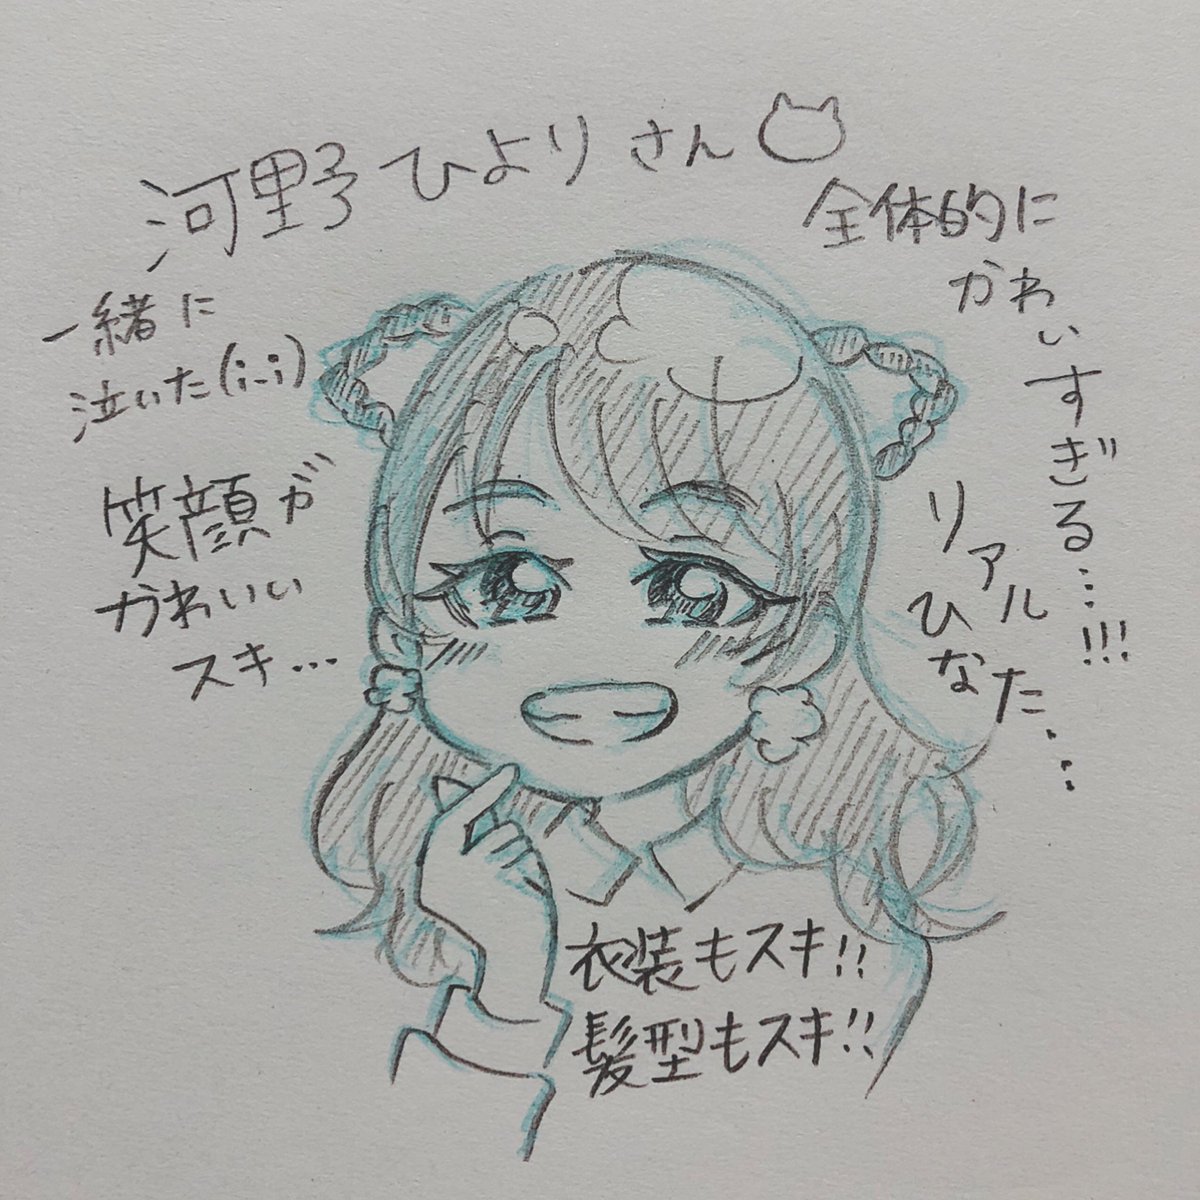 河野ひよりさん
全体的に
かわいすぎる…!!!
一緒に
泣いた(i_i)
笑顔が
かわいい
スキ…
リアル
ひなた…
衣装もスキ!!
髪型もスキ!!